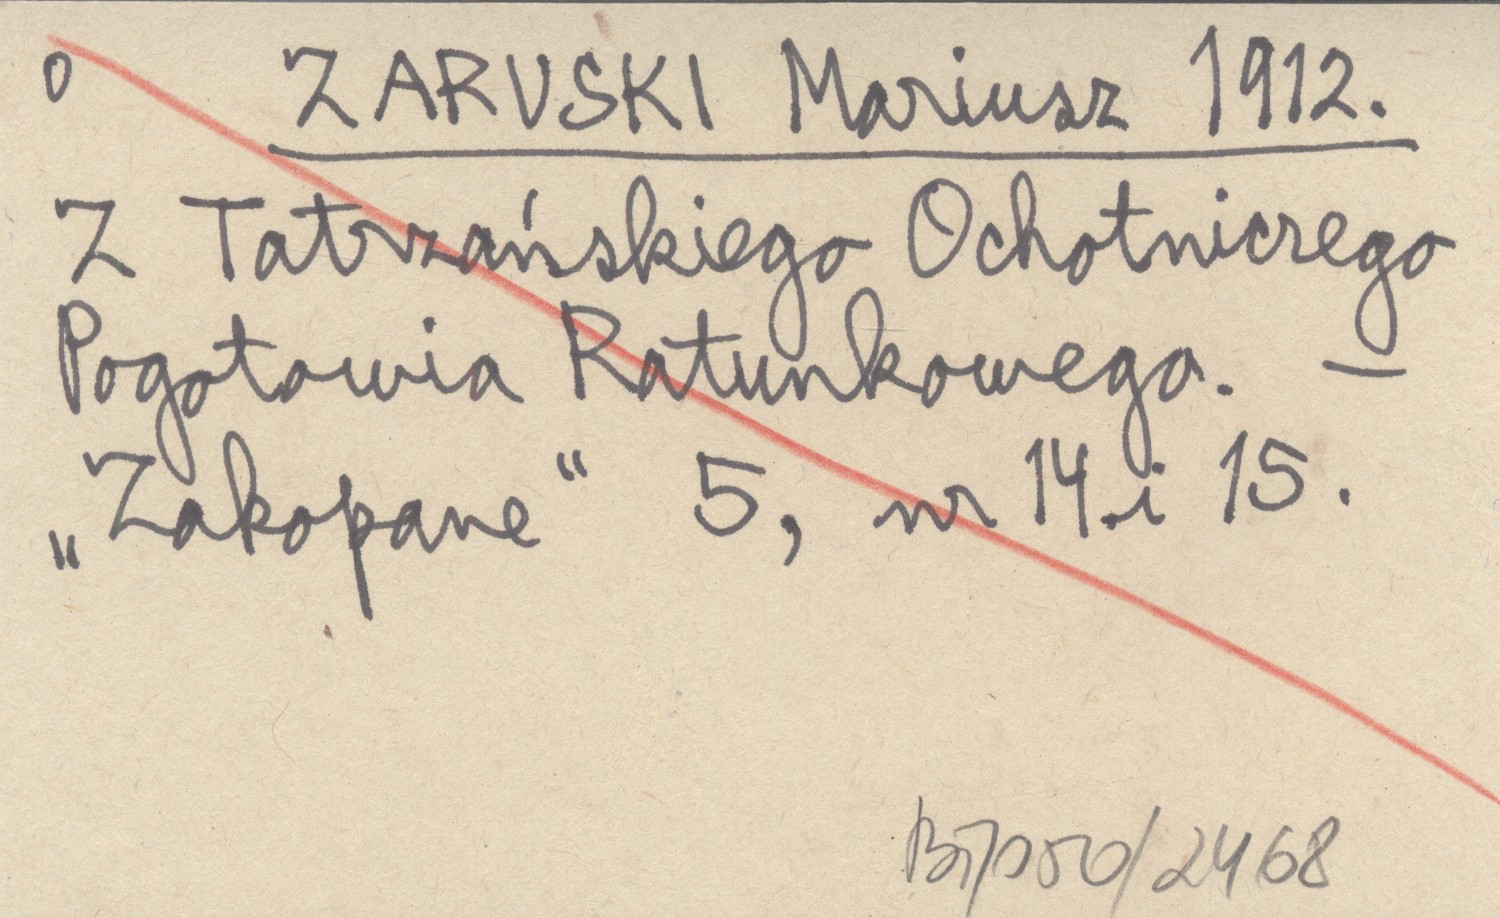 o ZARUSKI Mariusz 1912.
Z Tatrzańskiego Ochotniczego
Pogotowia Ratunkowego. —
„Zakopane" 5, nr 14 i 15.
/2468